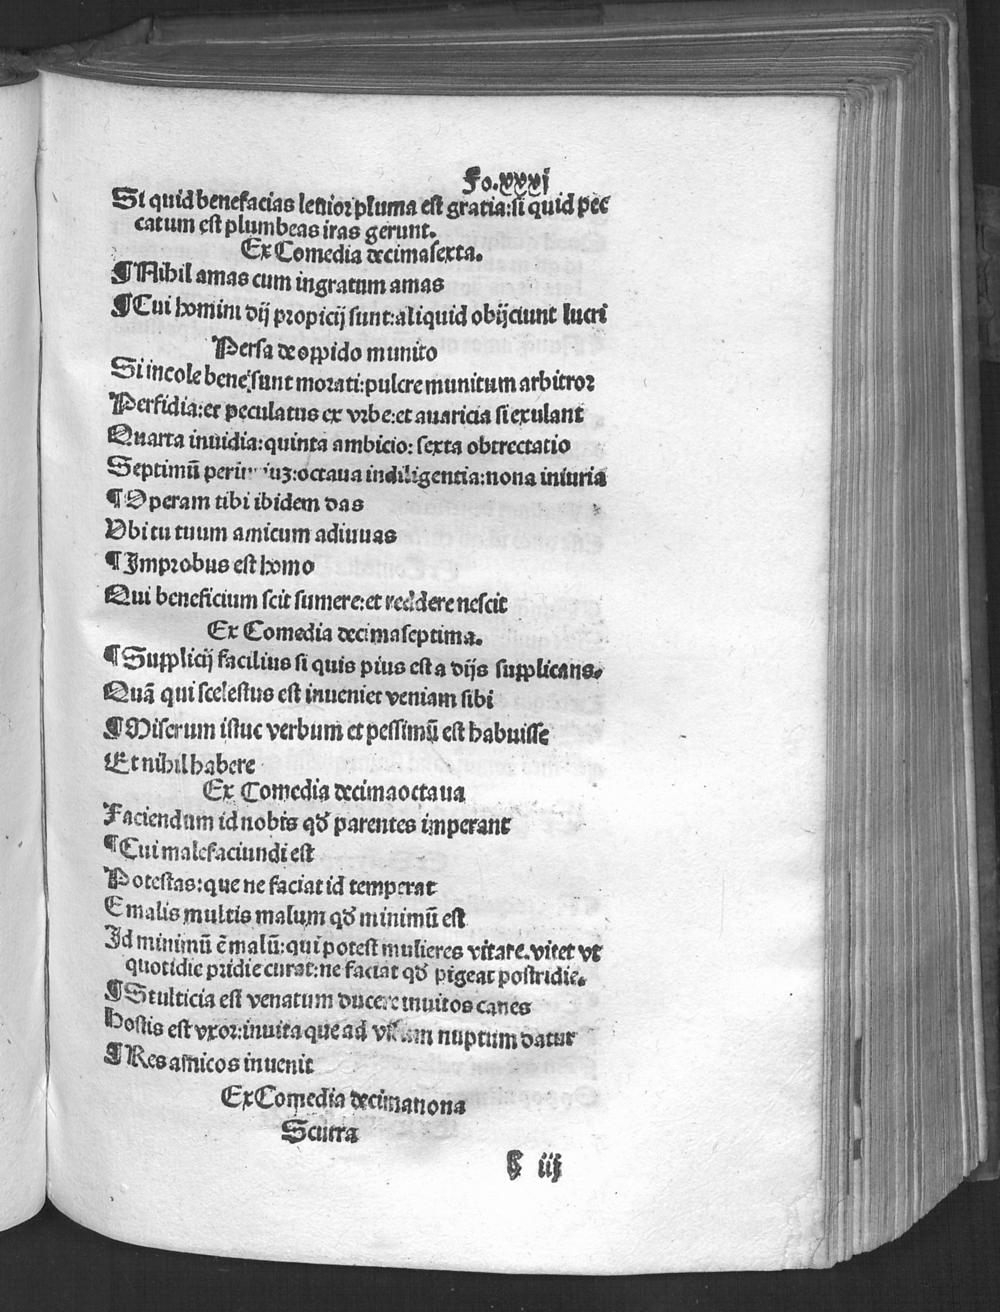 Fo.xxxj
Si quid benefacias lenior pluma est gratia: si quid pec
catum est plumbeas iras gerunt.
Ex Comedia decimasexta.
¶ Nihil amas cum ingratum amas
¶ Cui homini dij propicij sunt: aliquid obijciunt lucri
Persa de oppido munito
Si incole bene sunt morati: pulcre munitum arbitror
Perfidia: et peculatus ex vrbe: et auaricia si exulant
Quarta inuidia: quinta ambicio: sexta obtrectatio
Septimū octaua indiligentia: nona iniuria
¶ Operam tibi ibidem das
Vbi tu tuum amicum adiuuas
¶ Improbus est homo
Qui beneficium scit sumere: et reddere nescit
Ex Comedia decimaseptima.
¶ Supplicij facilius si quis pius est a dijs supplicans.
Quā qui scelestus est inueniet veniam sibi
¶ Miserum istuc verbum et pessimū est habuisse
Et nihil habere
Ex Comedia decimaoctaua
Faciendum id nobis qđ parentes imperant
¶ Cui malefaciundi est
Potestas: que ne faciat id temperat
E malis multis malum qđ minimū est
Id minimū ē malū: qui potest mulieres vitare. vitet vt
quotidie pridie curat: ne faciat qđ pigeat postridie.
¶ Stulticia est venatum ducere inuitos canes
Hostis est vxor: inuita que ad nuptum datur
¶ Res amicos inuenit
Ex Comedia decimanona
Scurra
iij